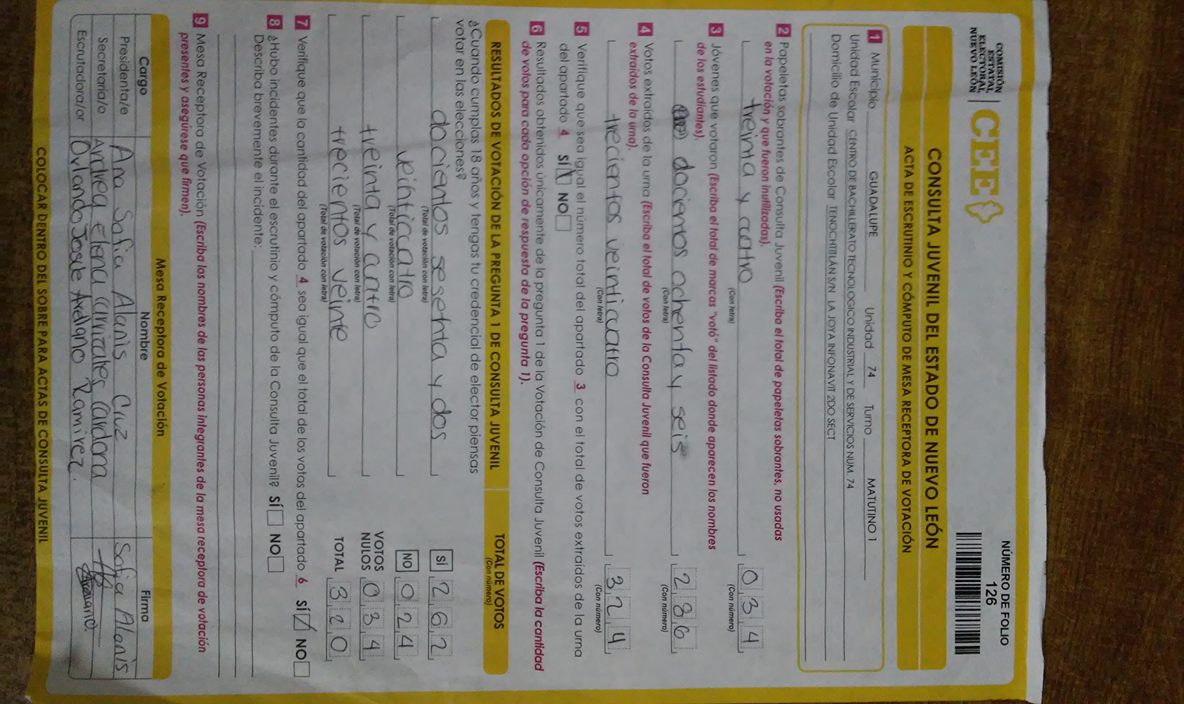 COMISIÓN
ESTATAL
ELECTORAL
NUEVO LEÓN
CEE
NÚMERO DE FOLIO
126
CONSULTA JUVENIL DEL ESTADO DE NUEVO LEÓN
ACTA DE ESCRUTINIO Y CÓMPUTO DE MESA RECEPTORA DE VOTACIÓN
1 Municipio GUADALUPE Unidad 74 Turno MATUTINO 1
Unidad Escolar CENTRO DE BACHILLERATO TECNOLOGICO INDUSTRIAL Y DE SERVICIOS NUM. 74
Domicilio de Unidad Escolar TENOCHTITLÁN S/N LA JOYA INFONAVIT 2DO SECT
2 Papeletas sobrantes de Consulta Juvenil (Escriba el total de papeletas sobrantes, no usadas
en la votación y que fueron inutilizadas).
treinta y cuatro 034
(Con letra) (Con número)
3 Jóvenes que votaron (Escriba el total de marcas "votó" del listado donde aparecen los nombres
de los estudiantes).
docientos ochenta y seis 286
(Con letra) (Con número)
4 Votos extraídos de la urna (Escriba el total de votos de la Consulta Juvenil que fueron
extraídos de la urna).
trecientos veinticuatro 324
(Con letra) (Con número)
5 Verifique que sea igual el número total del apartado 3 con el total de votos extraídos de la urna
del apartado 4 SÍ NO
6 Resultados obtenidos únicamente de la pregunta 1 de la Votación de Consulta Juvenil (Escriba la cantidad
de votos para cada opción de respuesta de la pregunta 1).
RESULTADOS DE VOTACIÓN DE LA PREGUNTA 1 DE CONSULTA JUVENIL TOTAL DE VOTOS
(Con número)
¿Cuando cumplas 18 años y tengas tu credencial de elector piensas
votar en las elecciones?
docientos sesenta y dos SÍ 262
(Total de votación con letra)
veinticuatro NO 024
(Total de votación con letra)
treinta y cuatro VOTOS NULOS 034
(Total de votación con letra)
trecientos veinte TOTAL 320
(Total de votación con letra)
7 Verifique que la cantidad del apartado 4 sea igual que el total de los votos del apartado 6 SÍ NO
8 ¿Hubo incidentes durante el escrutinio y cómputo de la Consulta Juvenil? SÍ NO
Describa brevemente el incidente:
9 Mesa Receptora de Votación (Escriba los nombres de las personas integrantes de la mesa receptora de votación
presentes y asegúrese que firmen).
Mesa Receptora de Votación
Cargo Nombre Firma
Presidenta/e Ana Sofia Alanis Cruz Sofia Alanis
Secretaria/o Andrea Elena Carrizales Cardona
Escrutadora/or Orlando Josue Arellano Ramirez.
COLOCAR DENTRO DEL SOBRE PARA ACTAS DE CONSULTA JUVENIL